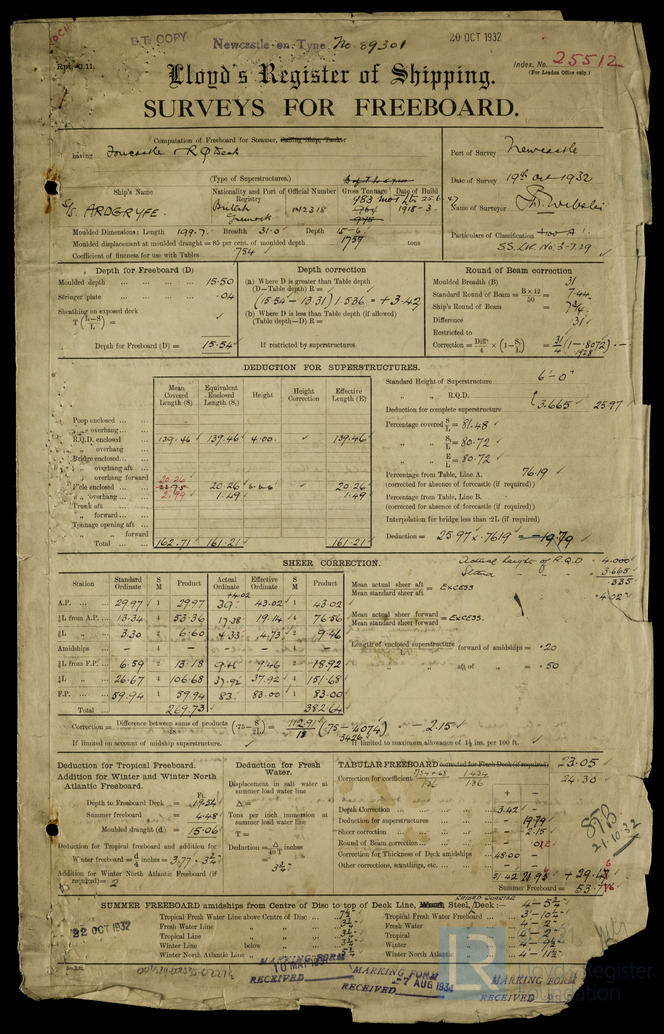 B.T. COPY
Newcastle-on-Tyne No. 89301
20 OCT 1932
Rpt. C.11.
Index. No. 25512
(For London Office only.)
Lloyd's Register of Shipping.
SURVEYS FOR FREEBOARD.
Computation of Freeboard for Steamer, Sailing Ship, Tanker
having Forecastle & R Q Deck
(Type of Superstructures.)
Port of Survey Newcastle
Date of Survey 19th Oct 1932
Name of Surveyor
Particulars of Classification
Ship's Name
Nationality and Port of Registry
Official Number
Gross Tonnage
Date of Build
S/S. ARDGRYFE.
British
Greenock
142318
453
1918-3
Moulded Dimensions: Length 199.7 Breadth 31.0 Depth 15-6
Moulded displacement at moulded draught = 85 per cent. of moulded depth 1759 tons
Coefficient of fineness for use with Tables .754
Depth for Freeboard (D)
Moulded depth 15.50
Stringer plate .04
Sheathing on exposed deck
T (L-S/L) =
Depth for Freeboard (D) = 15.54
Depth correction
(a) Where D is greater than Table depth
(D-Table depth) R =
(15.54 - 13.31) 1.536 = + 3.42
(b) Where D is less than Table depth (if allowed)
(Table depth-D) R =
If restricted by superstructures
Round of Beam correction
Moulded Breadth (B) 31
Standard Round of Beam = B×12/50 = 7.44
Ship's Round of Beam = 7 3/4
Difference .31
Restricted to
Correction = Diff/4 × (1 - S₁/L) = .31/4 (1 - .8072)
DEDUCTION FOR SUPERSTRUCTURES.
Mean Covered Length (S)
Equivalent Enclosed Length (S₁)
Height
Height Correction
Effective Length (E)
Poop enclosed
" overhang
R.Q.D. enclosed 139.46 139.46 4.00 139.46
" overhang
Bridge enclosed
" overhang aft
" overhang forward
F'cle enclosed 20.26 20.26 20.26
" overhang 2.99 1.49 1.49
Trunk aft
" forward
Tonnage opening aft
" " forward
Total 162.71 161.21 161.21
Standard Height of Superstructure 6'-0"
" " R.Q.D. 3.665
Deduction for complete superstructure 25.97
Percentage covered S/L = 81.48
" " S₁/L = 80.72
" " E/L = 80.72
Percentage from Table, Line A. 76.19
(corrected for absence of forecastle (if required))
Percentage from Table, Line B.
(corrected for absence of forecastle (if required))
Interpolation for bridge less than .2L (if required)
Deduction = 25.97 × .7619 = -19.79
SHEER CORRECTION.
Station
Standard Ordinate
S M
Product
Actual Ordinate
Effective Ordinate
S M
Product
+4.02
A.P. 29.97 1 29.97 39. 43.02 1 43.02
⅙L from A.P. 13.34 4 53.36 17.38 19.14 4 76.56
⅓L " 3.30 2 6.60 4.33 4.73 2 9.46
Amidships - 4 - - - 4 -
⅓L from F.P. 6.59 2 13.18 9.46 9.46 2 18.92
⅙L " 26.67 4 106.68 37.92 37.92 4 151.68
F.P. 59.94 1 59.94 83. 83.00 1 83.00
Total 269.73 382.64
Actual height of R.Q.D. 4.000
3.665
.335
4.02
Mean actual sheer aft / Mean standard sheer aft = Excess
Mean actual sheer forward / Mean standard sheer forward = Excess.
Length of enclosed superstructure / L forward of amidships = .20
" " aft of " = .50
Correction = Difference between sums of products / 18 (.75 - S/2L) = 112.91/18 (.75 - .4074) = - 2.15
.3426
If limited on account of midship superstructure.
If limited to maximum allowance of 1½ ins. per 100 ft.
Deduction for Tropical Freeboard.
Addition for Winter and Winter North Atlantic Freeboard.
Ft.
Depth to Freeboard Deck = 19.54
Summer freeboard = 4.48
Moulded draught (d) = 15.06
Deduction for Tropical freeboard and addition for
Winter freeboard = d/4 inches = 3.77 = 3¾"
Addition for Winter North Atlantic Freeboard (if required) = 2
Deduction for Fresh Water.
Displacement in salt water at summer load water line
Δ =
Tons per inch immersion at summer load water line
T =
Deduction = Δ/40T inches
=
TABULAR FREEBOARD corrected for Flush Deck (if required) 23.05
Correction for coefficient .754+.68/1.36 1.434/1.36 24.30
+ -
Depth Correction 3.42
Deduction for superstructures 19.79
Sheer correction 2.15
Round of Beam correction
Correction for Thickness of Deck amidships 48.00
Other corrections, scantlings, etc.
51.42
Summer Freeboard =
21.10.32
SUMMER FREEBOARD amidships from Centre of Disc to top of Deck Line, Wood, Steel, Deck:
RAISED QUARTER
Tropical Fresh Water Line above Centre of Disc
Fresh Water Line "
Tropical Line "
Winter Line below "
Winter North Atlantic Line "
Tropical Fresh Water Freeboard
Fresh Water "
Tropical "
Winter "
Winter North Atlantic "
22 OCT 1932
MARKING FORM
RECEIVED
MARKING FORM
RECEIVED 7 AUG 1934
MARKING FORM
RECEIVED
LR
Lloyd's Register
Foundation